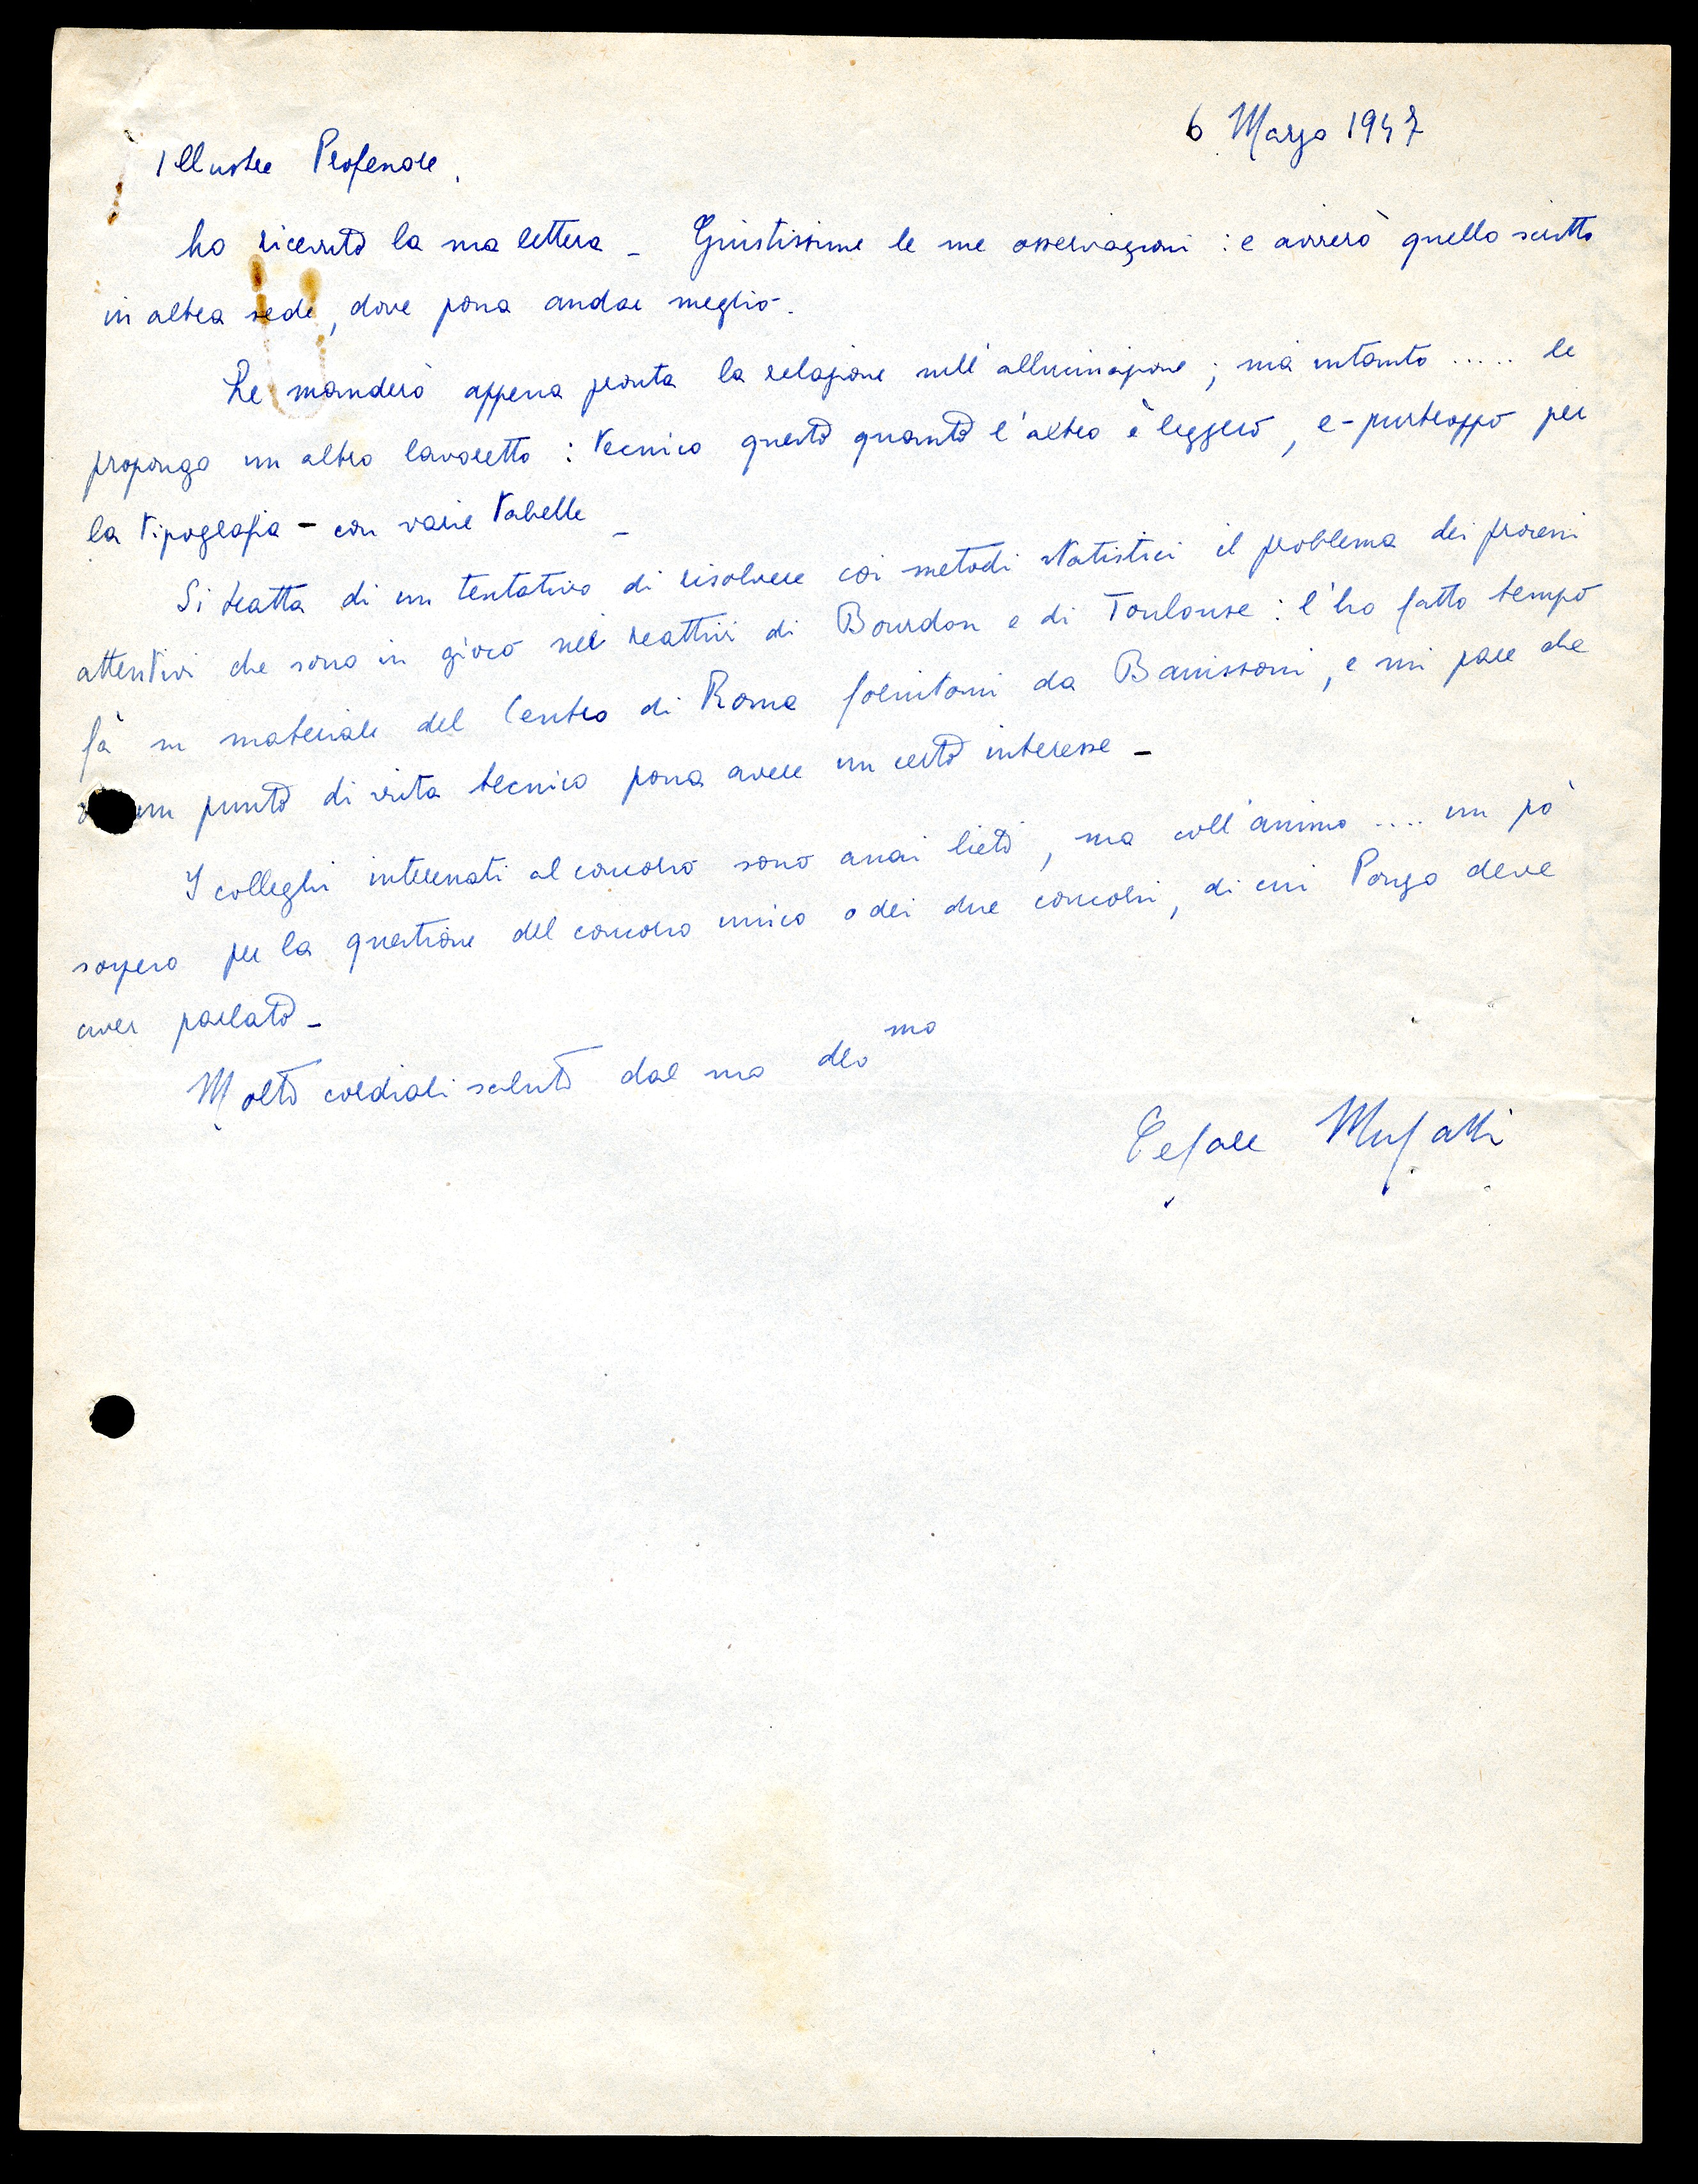 6 Marzo 1947
Illustre Professore,
ho ricevuto la sua lettera _ Giustissime le sue osservazioni : e avvierò quello scritto
in altra sede, dove possa andar meglio.
Le manderò appena pronta la relazione sull'allucinazione ; ma intanto ..... le
propongo un altro lavoretto : tecnico questo quanto l'altro è leggero, e - purtroppo per
la tipografia - con varie tabelle _
Si tratta di un tentativo di risolvere coi metodi statistici il problema dei processi
attentivi che sono in gioco nei reattivi di Bourdon e di Toulouse : l'ho fatto tempo
fà su materiale del Centro di Roma fornitomi da Banissoni, e mi pare che
un punto di vista tecnico possa avere un certo interesse _
I colleghi interessati al concorso sono assai lieti, ma coll'animo .... un pò
sospeso per la questione del concorso unico o dei due concorsi, di cui Ponzo deve
aver parlato _
Molti cordiali saluti dal suo dev mo
Cesare Musatti